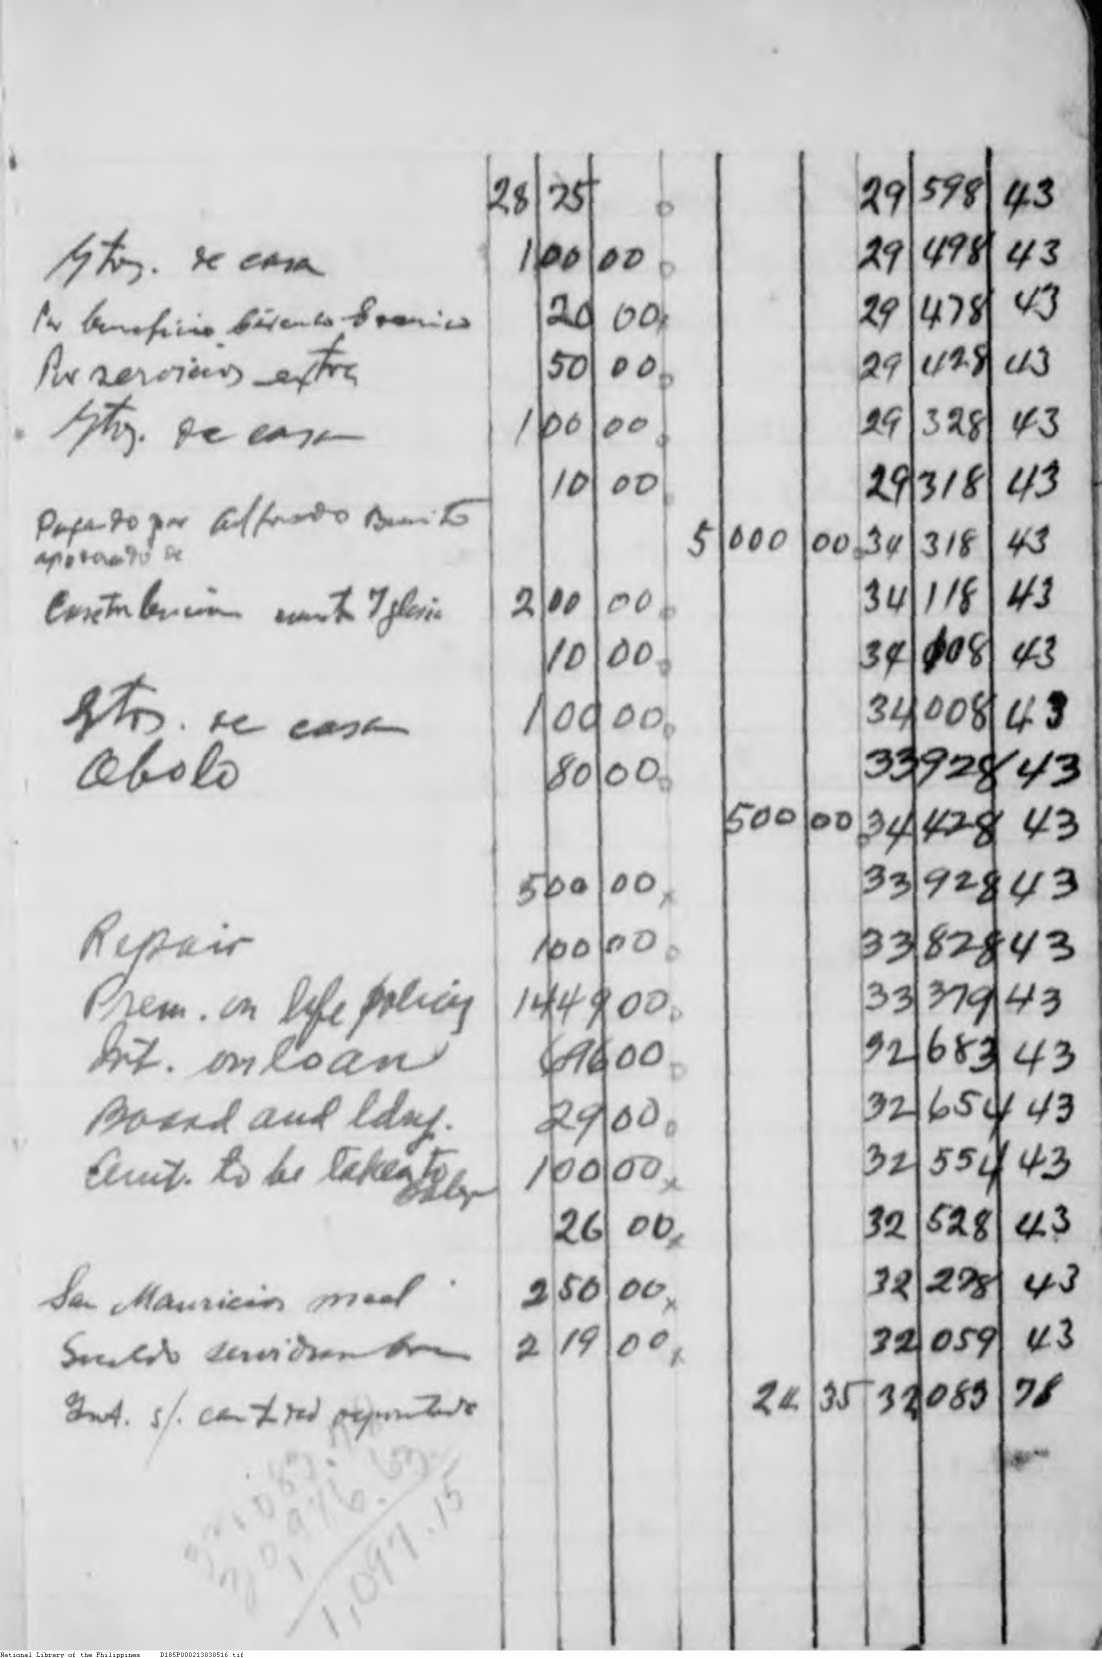 28 75 29 598 43
Gtos. de casa 100 00 29 498 43
Por beneficio 20 00 29 478 43
Por servicios extra 50 00 29 428 43
Gtos. de casa 100 00 29 328 43
10 00 29 318 43
Pagado por Alfredo Benito 5 000 00 34 318 43
de
Iglesia 200 00 34 118 43
10 00 34 108 43
Gtos. de casa 100 00 34 008 43
Obolo 80 00 33 928 43
500 00 34 428 43
500 00 33 928 43
Repair 100 00 33 828 43
Prem. on life policy 1449 00 33 379 43
Int. on loan 696 00 32 683 43
Board and ldng. 29 00 32 654 43
Amt. to be taken to 100 00 32 554 43
26 00 32 528 43
San Mauricio 250 00 32 278 43
Sueldo servidumbre 219 00 32 059 43
Int. s/. cantidad depositada 24 35 32 083 78
1,097.15
National Library of the Philippines D185P000213830516.tif